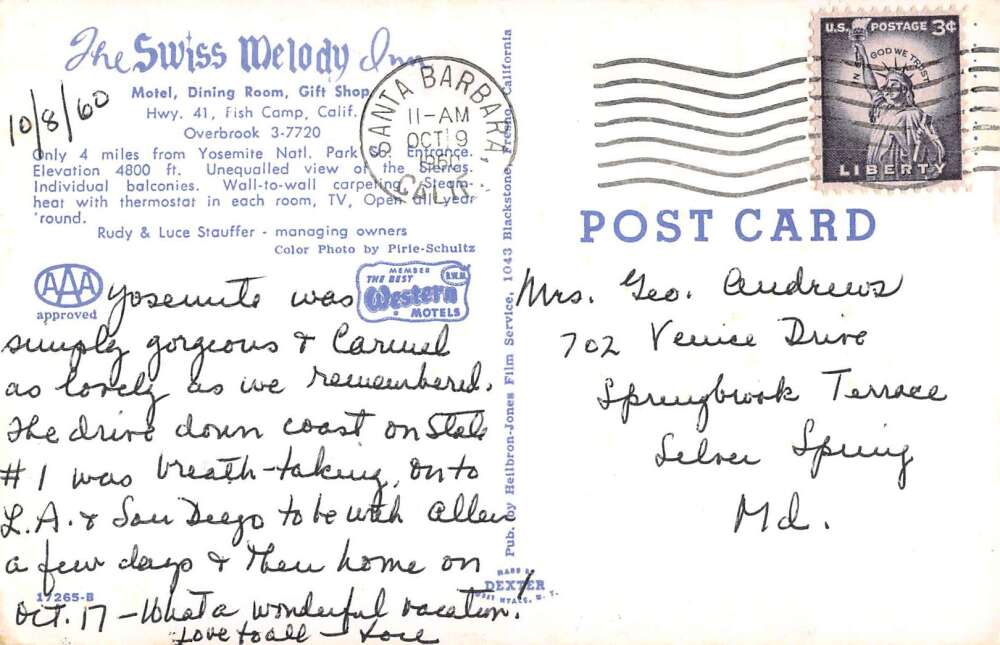 The Swiss Melody Inn
Motel, Dining Room, Gift Shop
Hwy. 41, Fish Camp, Calif.
Overbrook 3-7720
10/8/60
Only 4 miles from Yosemite Natl. Park So. Entrance.
Elevation 4800 ft. Unequalled view of the Sierras.
Individual balconies. Wall-to-wall carpeting. Steam-
heat with thermostat in each room, TV, Open all year
'round.
Rudy & Luce Stauffer - managing owners
Color Photo by Pirie-Schultz
AAA
approved
MEMBER
THE BEST
Western
MOTELS
B.W.M.
SANTA BARBARA,
11-AM
OCT 9
1960
CALIF.
U.S. POSTAGE 3¢
IN GOD WE TRUST
LIBERTY
POST CARD
Yosemite was
simply gorgeous & Carmel
as lovely as we remembered.
The drive down coast on State
#1 was breath-taking, on to
L.A. & San Diego to be with Allen
a few days & then home on
Oct. 17 - What a wonderful vacation!
Love to all -
17265-B
Pub. by Heilbron-Jones Film Service, 1043 Blackstone, Fresno, California
MADE BY
DEXTER
WEST NYACK, N. Y.
Mrs. Geo. Andrews
702 Venice Drive
Springbrook Terrace
Silver Spring
Md.